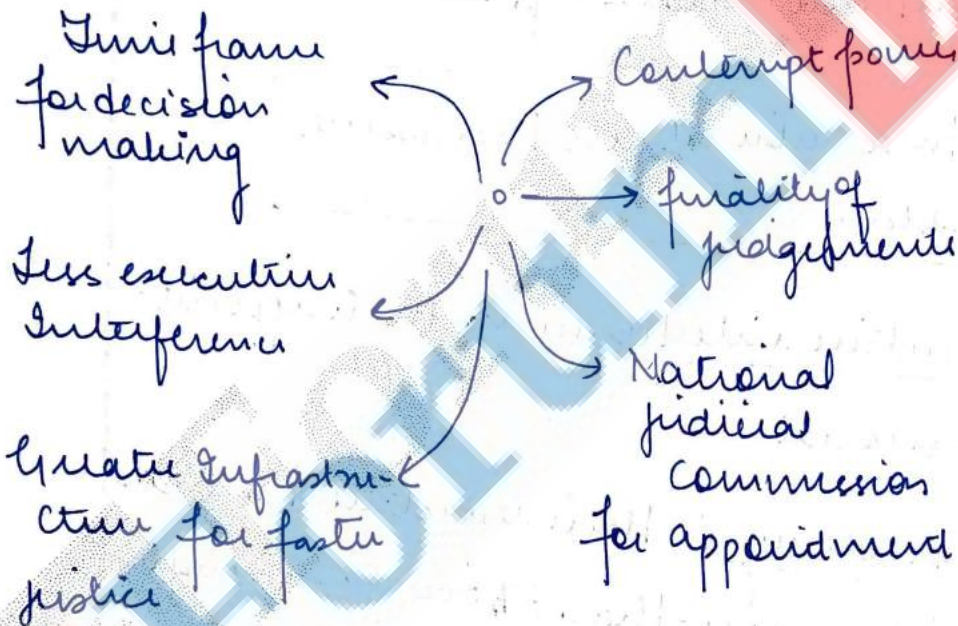 Time frame
for decision
making
Less executive
Interference
Greater Infrastru-
cture for faster
justice
Contempt power
finality of
judgements
National
judicial
Commission
for appointment
Forum